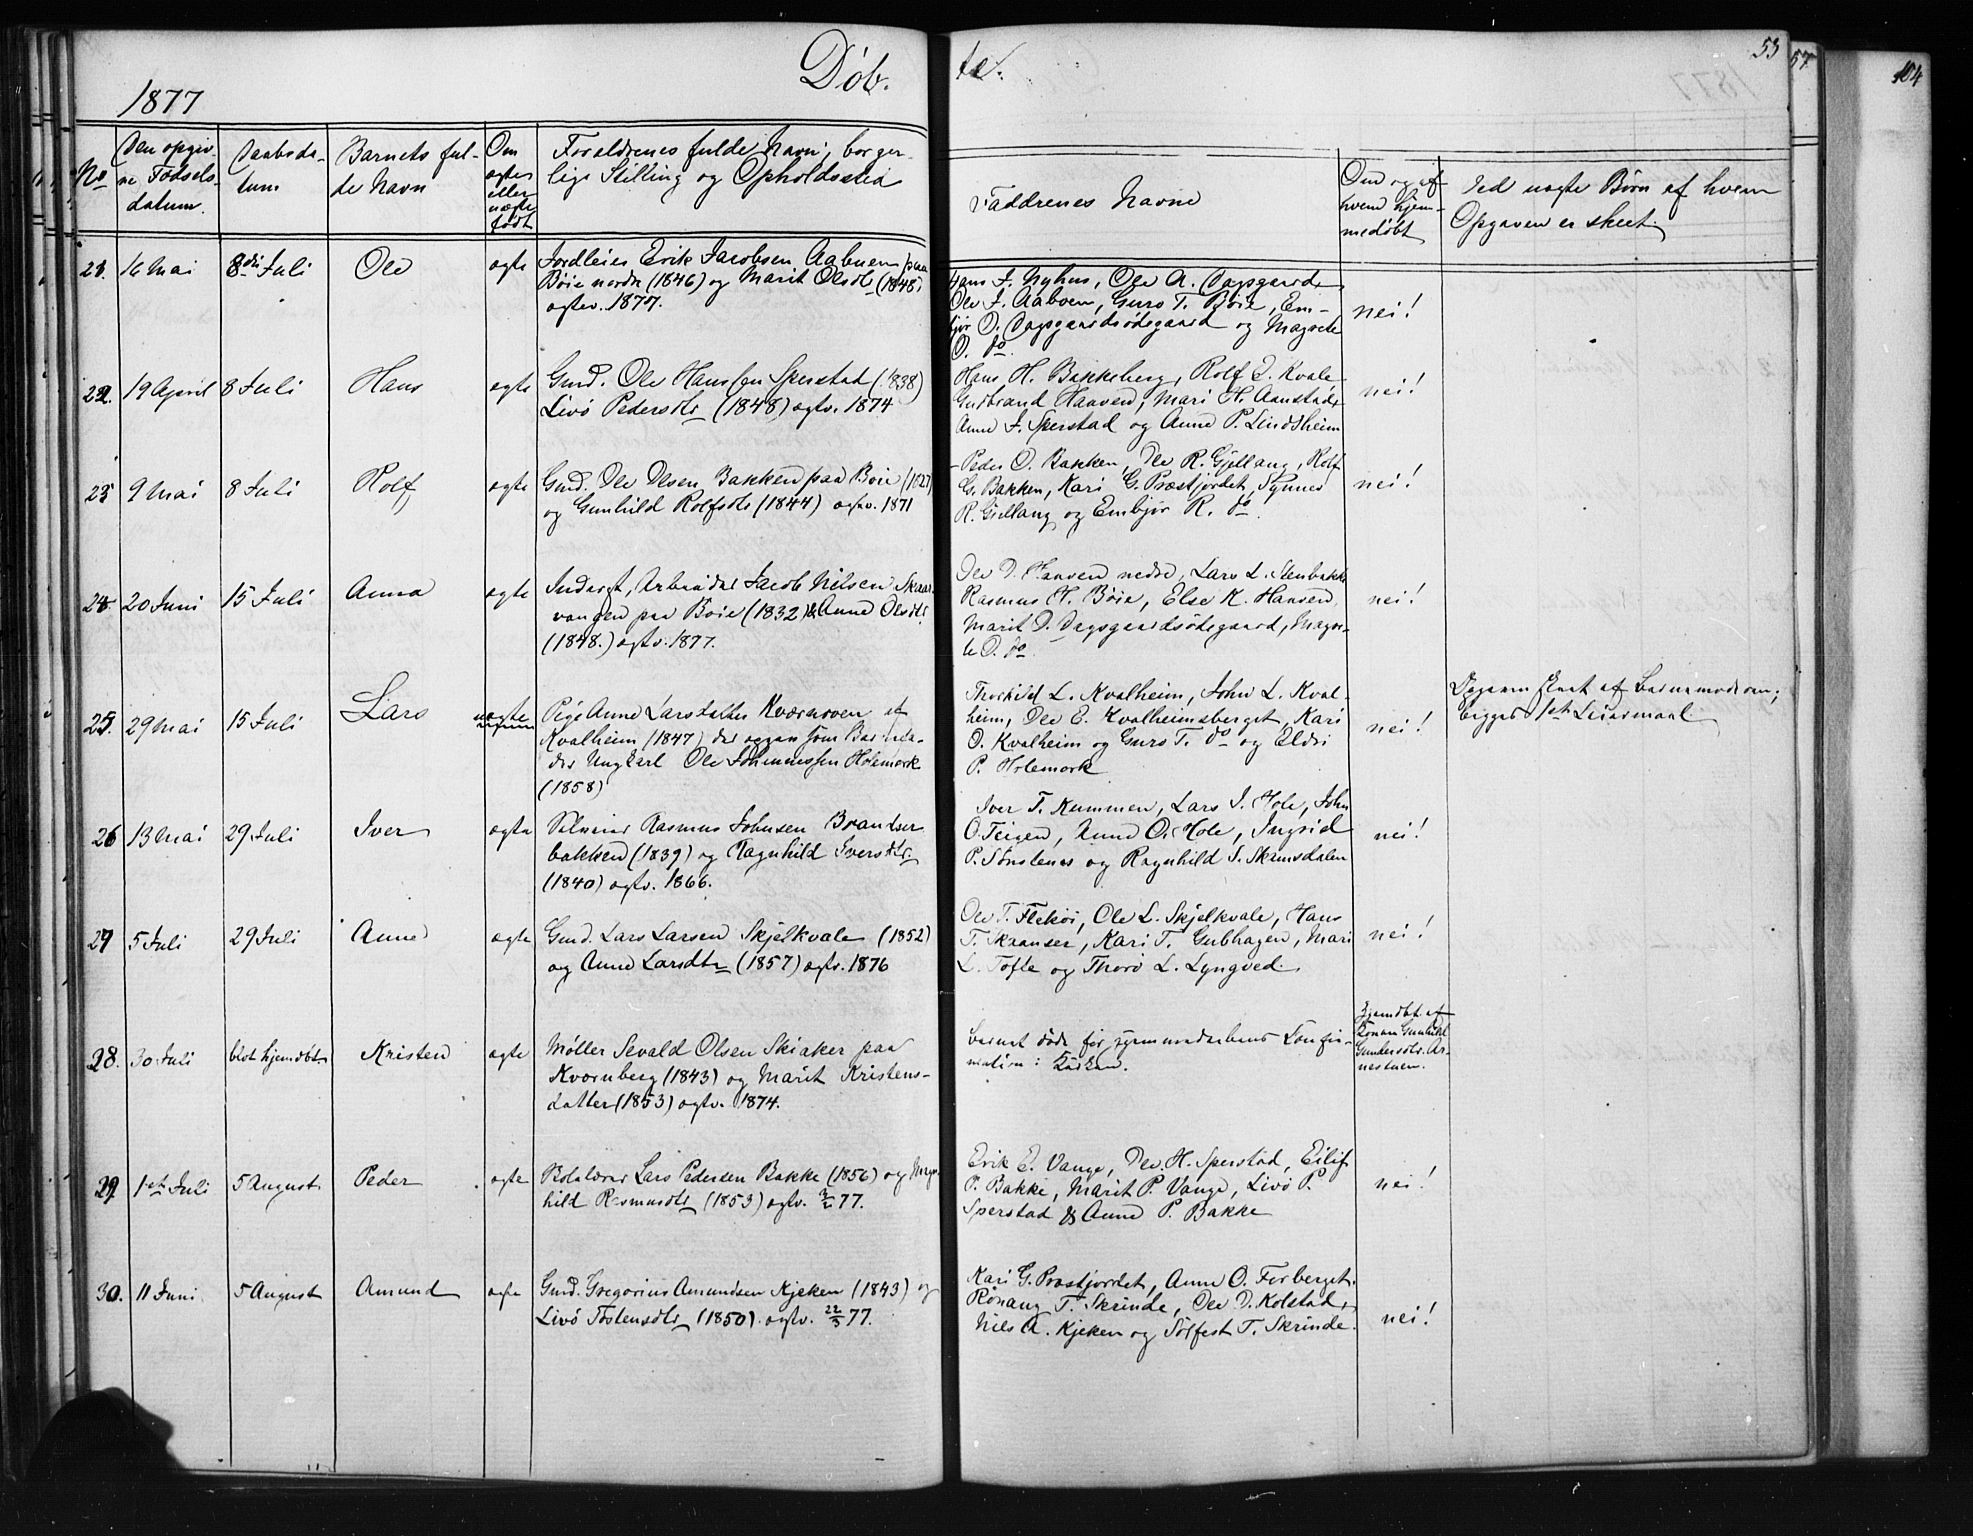 Døb.
te.
53
57
104
1877
No
Den opgiv-
ne Fødsels-
datum.
Daabsda-
tum
Barnets ful-
de Navn
Om
ægte
eller
uægte
født
Forældrenes fulde Navn, borger-
lige Stilling og Opholdssted
Faddrenes Navne
Om og af
hvem hjem-
medøbt
Ved uægte Børn af hvem
Opgaven er skeet
21. 16 Mai 8de Juli Ole ægte
Jordleier Erik Jacobsen Aabuen paa
Bøie nordre (1846) og Marit Olsdtr (1848)
ægtev. 1877.
Hans J. Nyhus, Ole A. Dagsgaard,
Ole J. Aaboen, Guro T. Bøie, Em-
bjør O. Dagsgaardsødegaard og Magnele
O. do.
nei!
22. 19 April 8 Juli Hans ægte
Gmd. Ole Hanssen Sperstad (1838)
Livø Pedersdtr (1848) ægtv. 1874
Hans H. Bakkeberg, Rolf E. Kvale
Gudbrand Haaven, Mari H. Aanstad,
Anne J. Sperstad og Anne P. Lindsheim
nei!
23 9 Mai 8 Juli Rolf ægte
Gmd. Ole Olsen Bakken paa Bøie (1827)
og Gunhild Rolfsdtr (1844) ægtv. 1871
Peder O. Bakken, Ole R. Gjellang, Rolf
G. Bakken, Kari G. Præstjordet, Synnes
R. Gjellang og Embjør R. do.
nei!
24 20 Juni 15 Juli Anna ægte
Inderst, Arbeider Jacob Nilsen Skaar-
vangen paa Bøie (1832) & Anne Olsdtr.
(1848.) ægtv. 1877.
Ole O. Haaven nedre, Lars L. Stenbakke
Rasmus H. Bøie, Else K. Hansen,
Marit O. Dagsgaardsødegaard, Magne-
le O. do.
nei!
25. 29 Mai 15 Juli Lars uægte
Pige Anne Larsdatter Kværnoven af
Kvalheim (1847) der opgav som Barnefa-
der Ungkarl Ole Johannessen Holemork
(1858)
Thorkild L. Kvalheim, John L. Kval-
heim, Ole E. Kvalheimsberget, Kari
O. Kvalheim og Guro T. do og Eldri
P. Holemork
nei!
Opgaven skeet af Barnemoderen;
begges 1ste Leiermaal
26 13 Mai 29 Juli Iver ægte
Selveier Rasmus Johnsen Brandser
bakken (1839) og Ragnhild Iversdtr
(1840) ægtv. 1866.
Iver T. Kummen, Lars I. Hole, John
O. Teigen, Anne O. Hole, Ingrid
P. Sønstenes og Ragnhild S. Skamsdalen
nei!
27 5 Juli 29 Juli Anne ægte
Gmd. Lars Larsen Skjelkvale (1852)
og Anne Larsdtr (1857) ægtv. 1876
Ole T. Flekøi, Ole L. Skjelkvale, Hans
T. Skaanser, Kari T. Gubhagen, Mari
L. Tofte og Thorø L. Lyngved.
nei!
28. 30 Juli blot hjemdøbt Kristen ægte
Møller Sevald Olsen Skiaker paa
Kvørnberg (1843) og Marit Kristens-
datter (1853) ægtv. 1874.
Barnet døde før hjemmedaabens Konfir-
mation i Kirken.
Hjemdbt af
Konen Gunhild
Gundersdtr. Ar-
nestuen.
29. 1ste Juli 5 August Peder ægte
Skolelærer Lars Pedersen Bakke (1856) og
hild Rasmusdtr (1853) ægtv. 77.
Erik E. Vange, Ole H. Sperstad, Eilif
P. Bakke, Marit P. Vange, Livø P.
Sperstad & Anne P. Bakke
nei!
30. 11 Juni 5 August Amund ægte
Gmd. Gregorius Amundsen Kjeken (1843) og
Livø Tostensdtr (1850). ægtv. 22/3 77.
Kari G. Præstjordet, Anne O. Forberget.
Rønaug T. Skrinde, Ole O. Kolstad,
Nils A. Kjeken og Sølfest T. Skrinde.
nei!